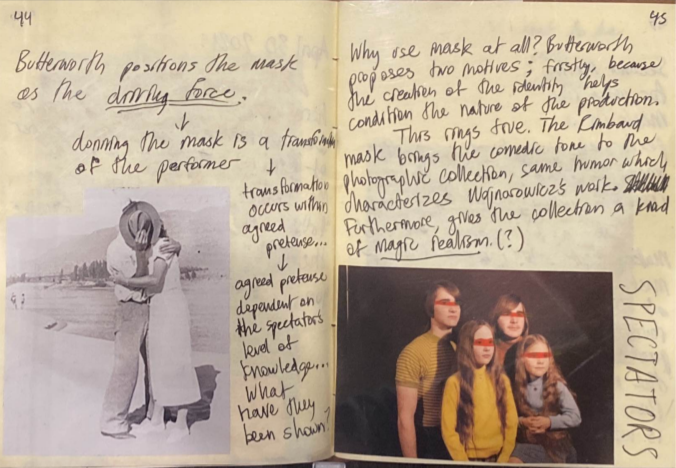 44
Butterworth positions the mask
as the driving force.
↓
donning the mask is a transformation
of the performer
↓
transformation
occurs within
agreed
pretense...
↓
agreed pretense
dependent on
the spectator's
level of
knowledge...
What
have they
been shown?
45
Why use mask at all? Butterworth
proposes two motives; firstly, because
the creation of the identity helps
condition the nature of the production.
This rings true. The Rimbaud
mask brings the comedic tone to the
photographic collection, same humor which
characterizes Wojnarowicz's work.
Furthermore, gives the collection a kind
of magic realism. (?)
SPECTATORS